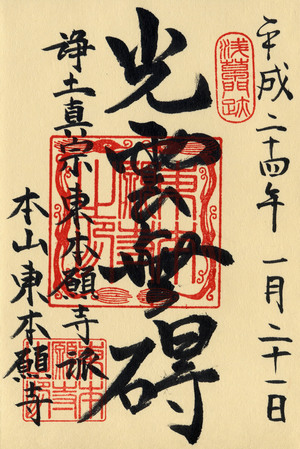 平成二十四年一月二十一日
浅草跡
光雲無碍
浄土真宗東本願寺派
本山東本願寺